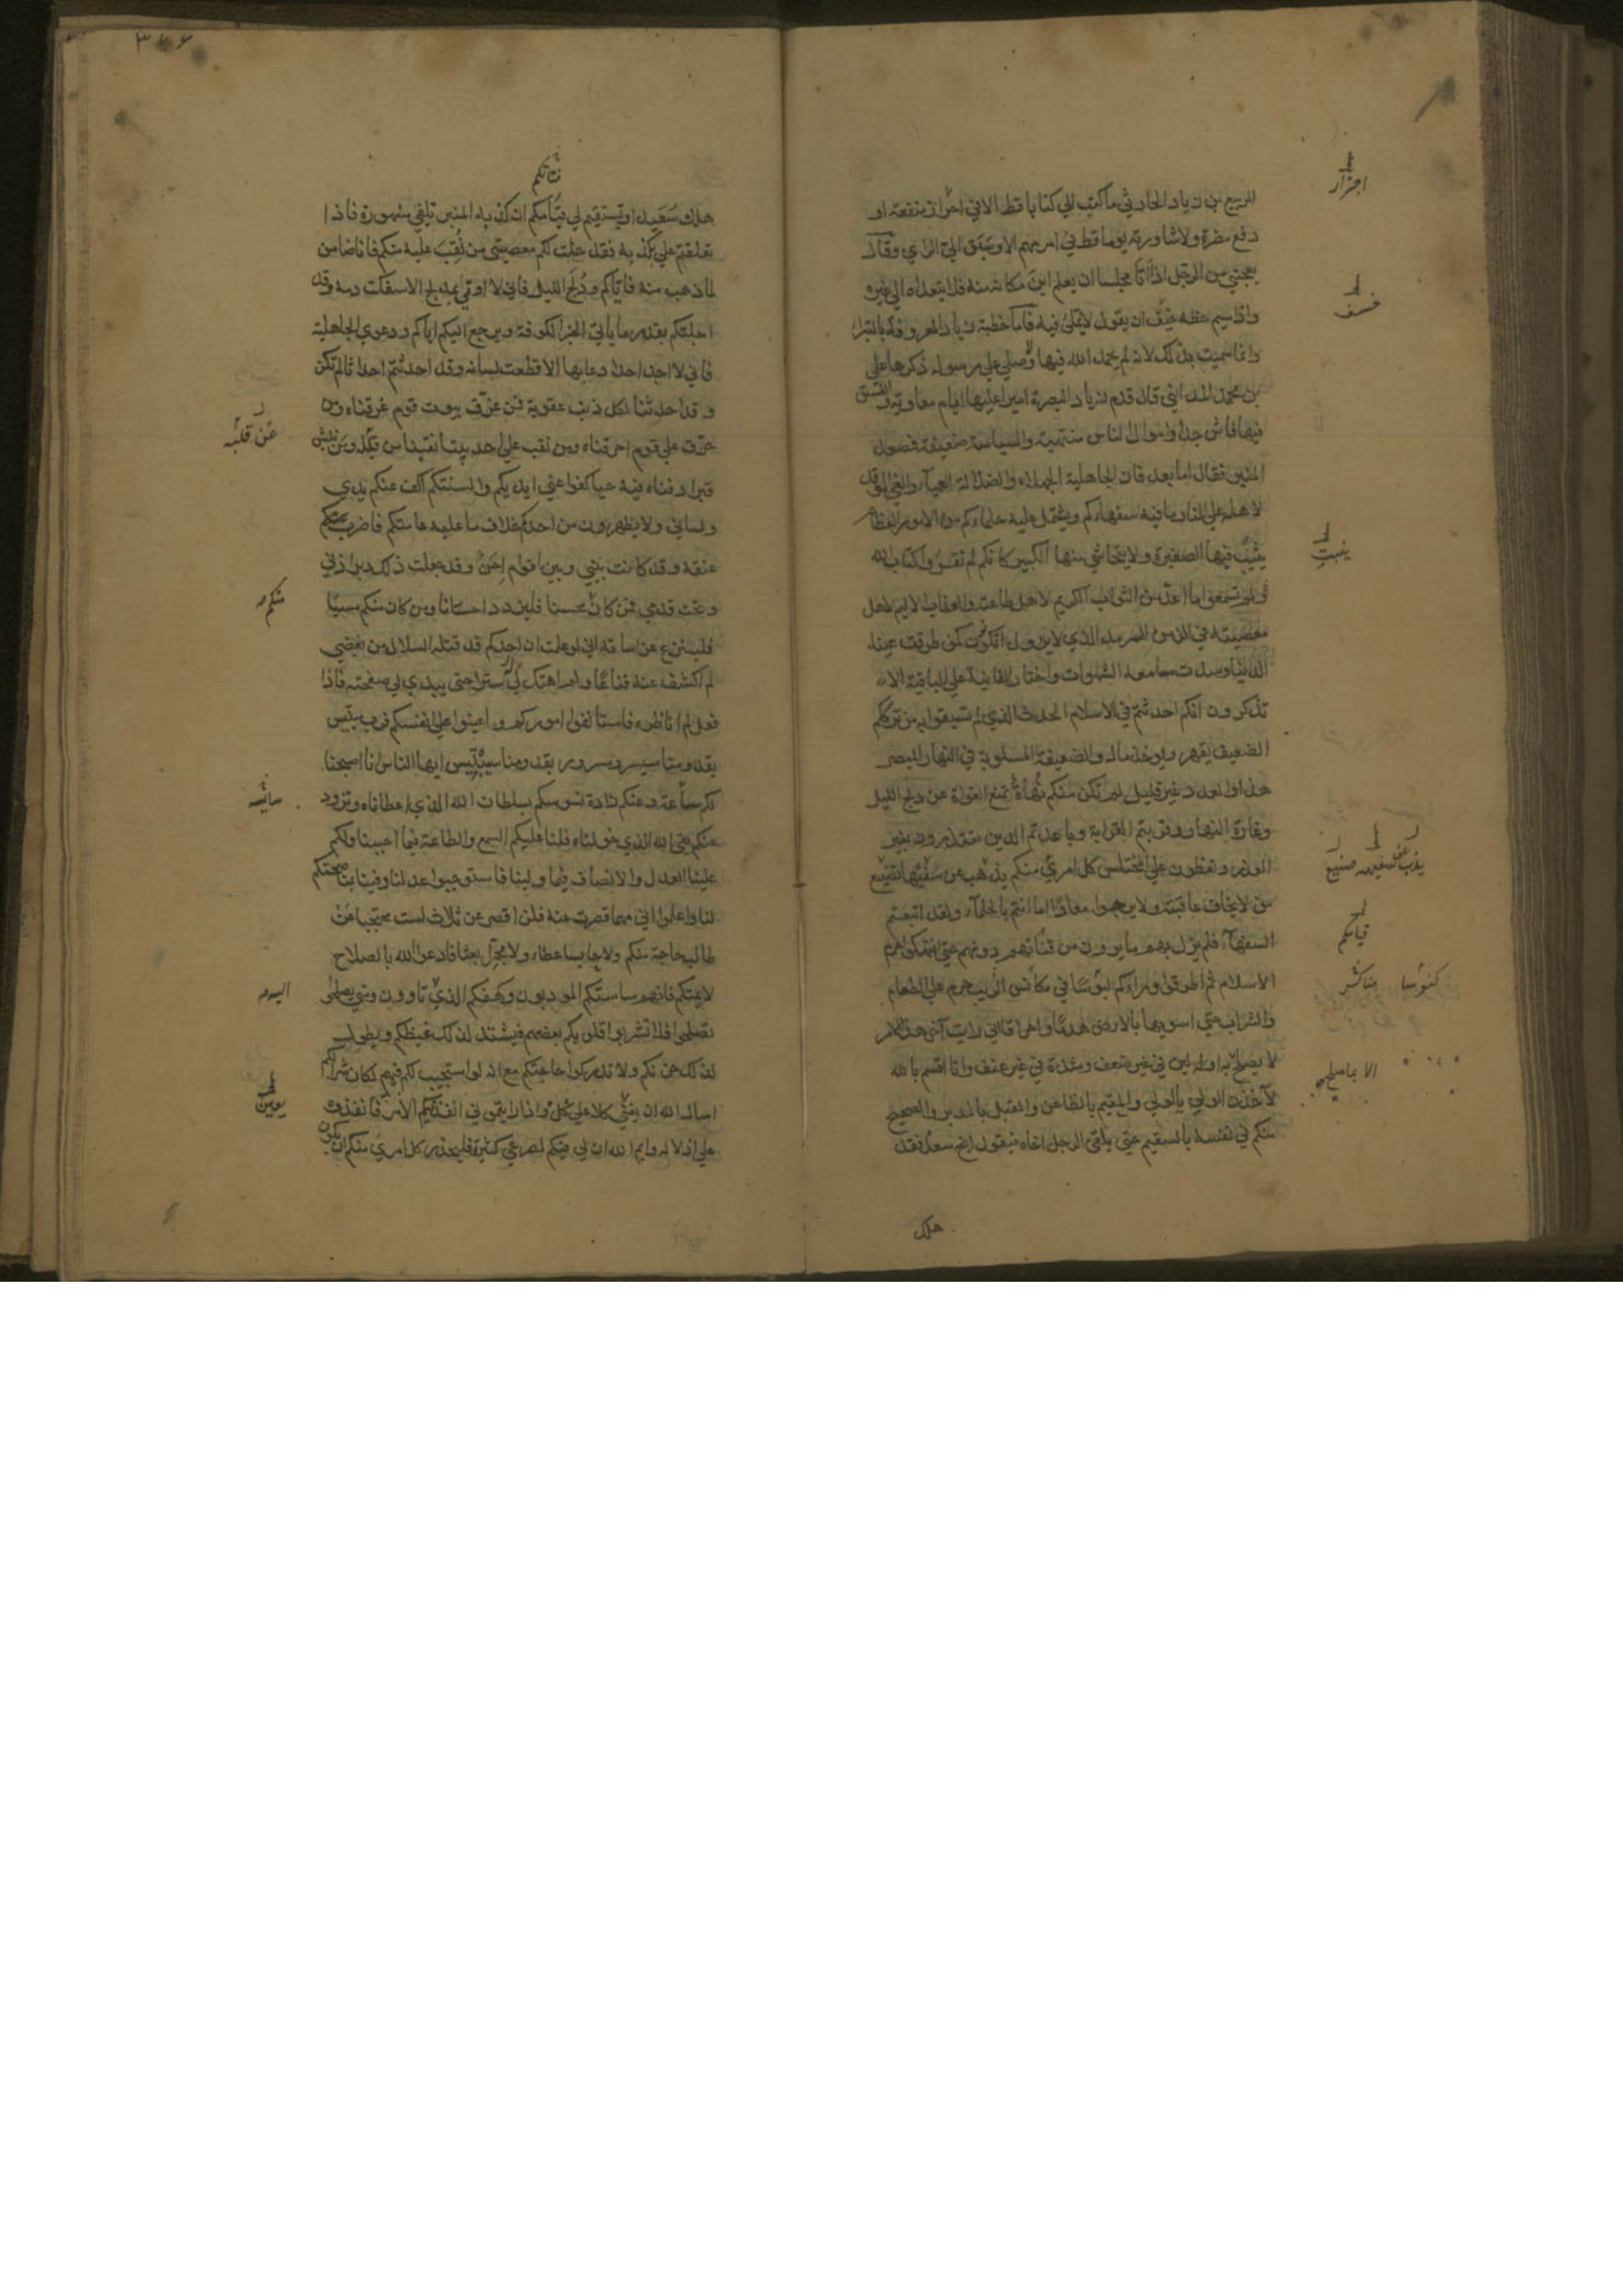 الربيع بن زياد الحارثي ما كتب الي كتابا قط الا في احراز منفعة او
دفع مضرة ولا شاورته يوما قط في امر مبهم الا وسبق الي الراي وقال
يعجبني من الرجل اذا اتا مجلسا ان يعلم اين مكانه منه فلا يتعداه الي غيره
واذا سيم خطة خسف ان يقول لا بملئ فيه فاما خطبة زياد المعروفة بالبتراء
وانما سميت بذلك لانه لم يحمد الله فيها ولا صلي علي رسوله ذكرها علي
بن محمد المدايني قال قدم زياد البصرة اميرا عليها ايام معاوية والفسق
فيها فاش جدا واموال الناس منتهبة والسياسة ضعيفة فصعد
المنبر فقال اما بعد فان الجاهلية الجهلاء والضلالة العمياء والغي الموقد
لاهله علي النار ما فيه سفهاءكم ويشتمل عليه حلماءكم من الامور العظام
ينبت فيها الصغير ولا يتحاشي منها الكبير كانكم لم تقروا كتاب الله
ولم تسمعوا ما اعد من الثواب الكريم لاهل طاعته والعقاب الاليم لاهل
معصيته في الزمن السرمد الذي لا يزول اتكونون كمن طرفت عينه
الدنيا وسدت مسامعه الشهوات واختار الفانية علي الباقية الا
تذكرون انكم احدثتم في الاسلام الحدث الذي لم تسبقوا به من ترككم
الضعيف يقهر ويوخذ ماله والضعيفة المسلوبة في النهار المبصر
هذا والعدد غير قليل الم تكن منكم نهاة تمنع الغواة عن دلج الليل
وغارة النهار وقربتم القرابة وباعدتم الدين تعتذرون بغير
العذر وتغطون علي المختلس كل امرئ منكم يذهب عن سفيهه صنيع
من لا يخاف عاقبة ولا يرجوا معادا ما انتم بالحلماء ولقد اتبعتم
السفهاء فلم يزل بهم ما يرون من قيامكم دونهم حتي انتهكوا حرم
الاسلام ثم اطرقوا وراءكم كنوسا في مكانس الريب حرم علي الطعام
والشراب حتي اسويها بالارض هدما واحراقا اني رايت اخر هذا الامر
لا يصلح به اوله لين في غير ضعف وشدة في غير عنف وانا اقسم بالله
لآخذن الولي بالولي والمقيم بالظاعن والمقبل بالمدبر والصحيح
منكم في نفسه بالسقيم حتي يلقي الرجل اخاه فيقول انج سعد فقد
هلك
اجترار
خسف
ينبت
يذب عن سفيهه صنيع
قيامكم
كنوسا مكانس
الا بما صلح به
٣٧٦
قناتكم
هلك سعيد او تستقيم لي قناتكم ان كذبة المنبر تلفي مشهورة فاذا
تعلقتم علي بكذبة فقد حلت لكم معصيتي من نقب عليه منكم فانا ضامن
لما ذهب منه فاياكم ودلج الليل فاني لا اوتي بمدلج الا سفكت دمه وقد
اجلتكم بقدر ما ياتي الخبر الكوفة ويرجع اليكم اياكم ودعوي الجاهلية
فاني لا اجد احدا دعا بها الا قطعت لسانه وقد احدثتم احداثا لم تكن
وقد احدثنا لكل ذنب عقوبة فمن غرق بيوت قوم غرقناه ومن
حرق علي قوم احرقناه ومن نقب علي احد بيتا نقبنا عن قلبه ومن نبش
قبرا دفناه فيه حيا كفوا عني ايديكم والسنتكم اكف عنكم يدي
ولساني ولا يظهرون من احدكم خلاف ما عليه عامتكم فاضرب
عنقه وقد كانت بيني وبين اقوام احن وقد جعلت ذلك دبر اذني
وتحت قدمي فمن كان محسنا فليزدد احسانا ومن كان منكم مسيئا
فلينزع عن اساءته اني لو علمت ان احدكم قد قتله السلال من بغضي
لم اكشف عنه قناعا ولم اهتك له سترا حتي يبدي لي صفحته فاذا
فعل لم اناظره فاستانفوا اموركم واعينوا علي انفسكم فرب مبتئس
بقدومنا سيسر ومسرور بقدومنا سيبتئس ايها الناس انا اصبحنا
لكم ساسة وعنكم ذادة نسوسكم بسلطان الله الذي اعطاناه ونذود
عنكم بفئ الله الذي خولناه فلنا عليكم السمع والطاعة فيما احببنا ولكم
علينا العدل والانصاف فيما ولينا فاستوجبوا عدلنا وفيئنا بمناصحتكم
لنا واعلموا اني مهما قصرت عنه فلن اقصر عن ثلاث لست محتجبا عن
طالب حاجة منكم ولا حابسا عطاء ولا مجمرا بعثا فادعوا الله بالصلاح
لايمتكم فانهم ساستكم المودبون وكهفكم الذي تاوون ومتي يصلحوا
تصلحوا فلا تشربوا قلوبكم بغضهم فيشتد لذلك غيظكم ويطول
لذلك حزنكم ولا تدركوا حاجتكم مع انه لو استجيب لكم فيهم لكان شرا لكم
اسال الله ان يعين كلا علي كل واذا رايتموني انفذ فيكم الامر فانفذوه
علي اذلاله وايم الله ان لي فيكم لصرعي كثيرة فليحذر كل امرئ منكم ان يكون
عن قلبه
منكم
ساسة
اليه
يعين